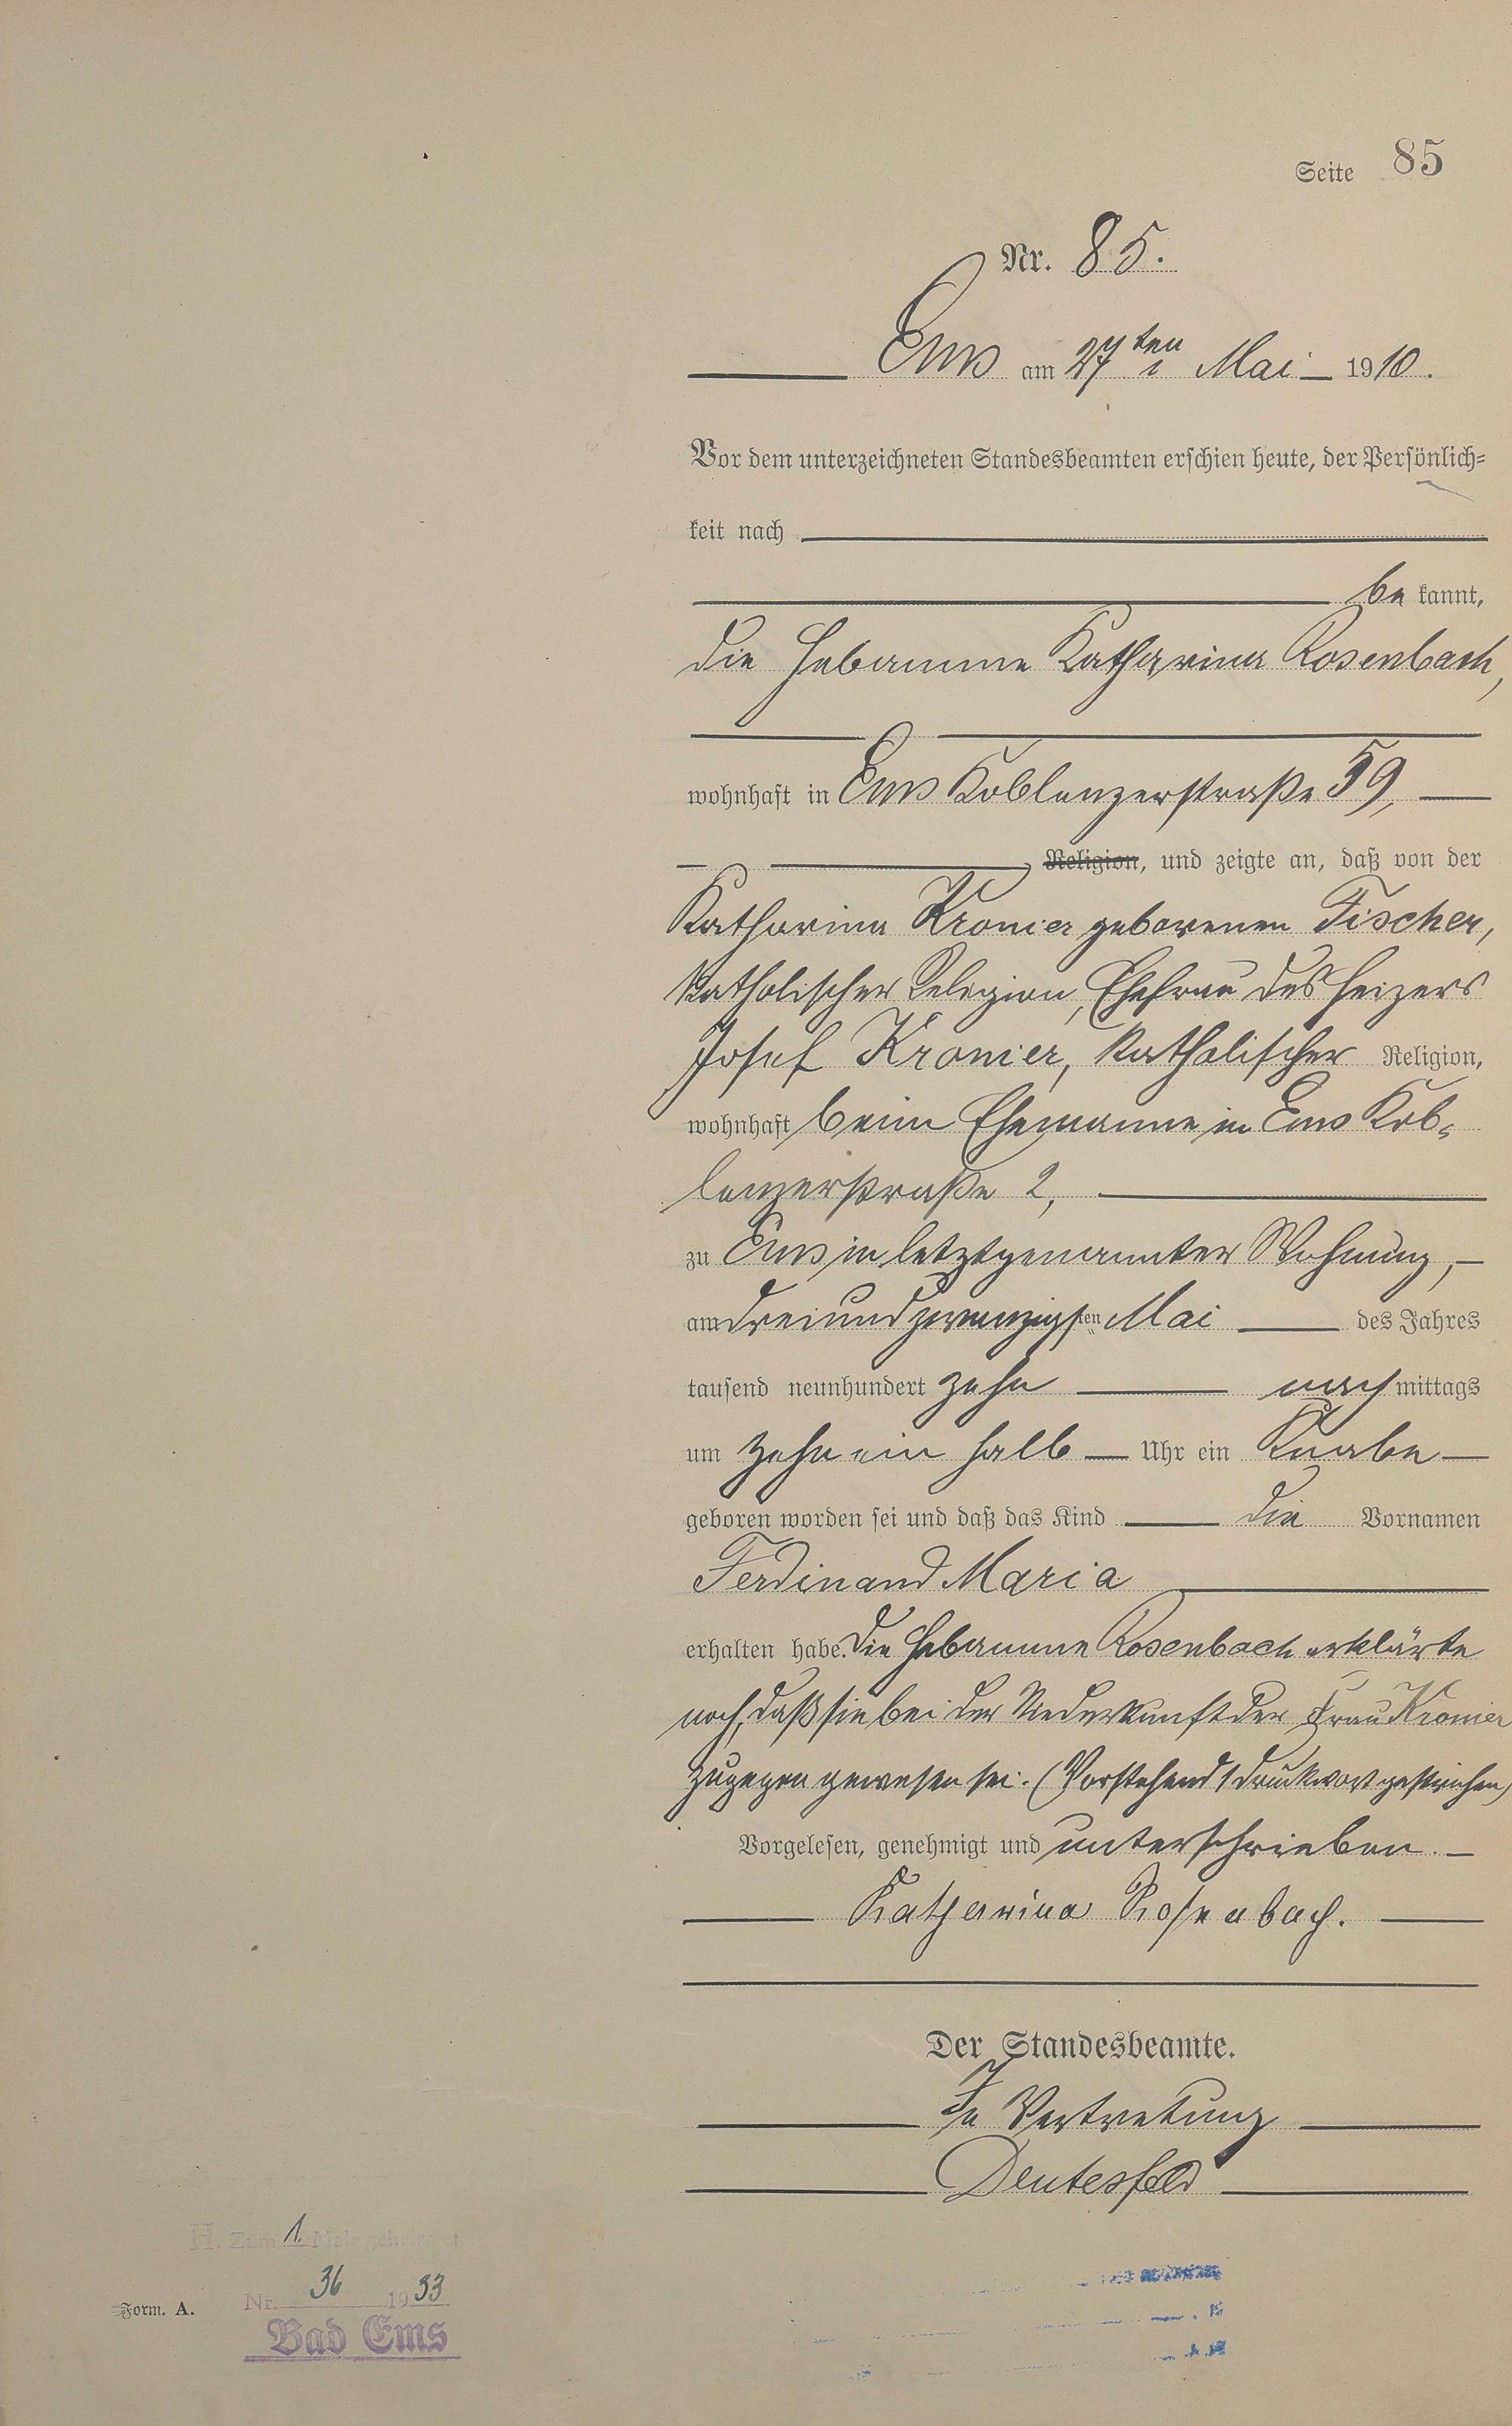 Seite 85
Nr. 85.
Ems am 27ten Mai 1910.
Vor dem unterzeichneten Standesbeamten erschien heute, der Persönlich=
keit nach
be kannt,
die Hebamme Katharina Rosenbach,
wohnhaft in Ems Koblenzerstraße 59,
Religion, und zeigte an, daß von der
Katharina Kronier geborenen Fischer,
katholischer Religion, Ehefrau des Heizers
Josef Kronier, katholischer Religion,
wohnhaft beim Ehemanne in Ems Kob=
lenzerstraße 2,
zu Ems in letztgenannter Wohnung,
am dreiundzwanzigsten Mai des Jahres
tausend neunhundert zehn nachmittags
um zehn ein halb Uhr ein Knabe
geboren worden sei und daß das Kind die Vornamen
Ferdinand Maria
erhalten habe. Die Hebamme Rosenbach erklärte
noch, daß sie bei der Niederkunft der Frau Kronier
zugegen gewesen sei. (Vorstehend 1 Druckwort gestrichen)
Vorgelesen, genehmigt und unterschrieben.
Katharina Rosenbach.
Der Standesbeamte.
In Vertretung
Deutesfeld
H. Zum 1. Male geheiratet
Nr. 36 1933
Form. A.
Bad Ems